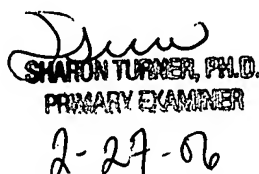 SHARON TURNER, PH.D.
PRIMARY EXAMINER
2-27-06